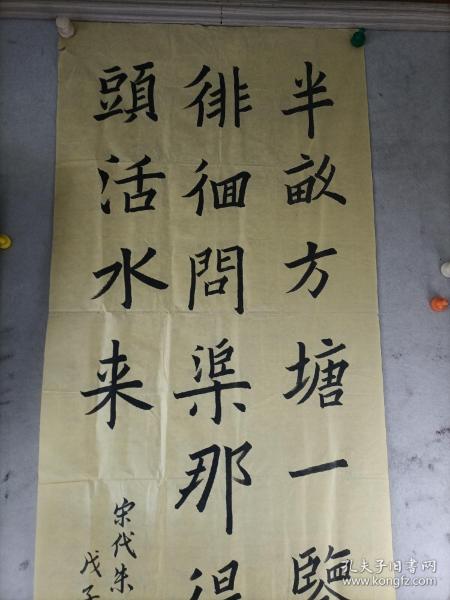 半畝方塘一鑒
徘徊問渠那得
頭活水来
宋代朱
戊子
孔夫子旧书网
www.kongfz.com